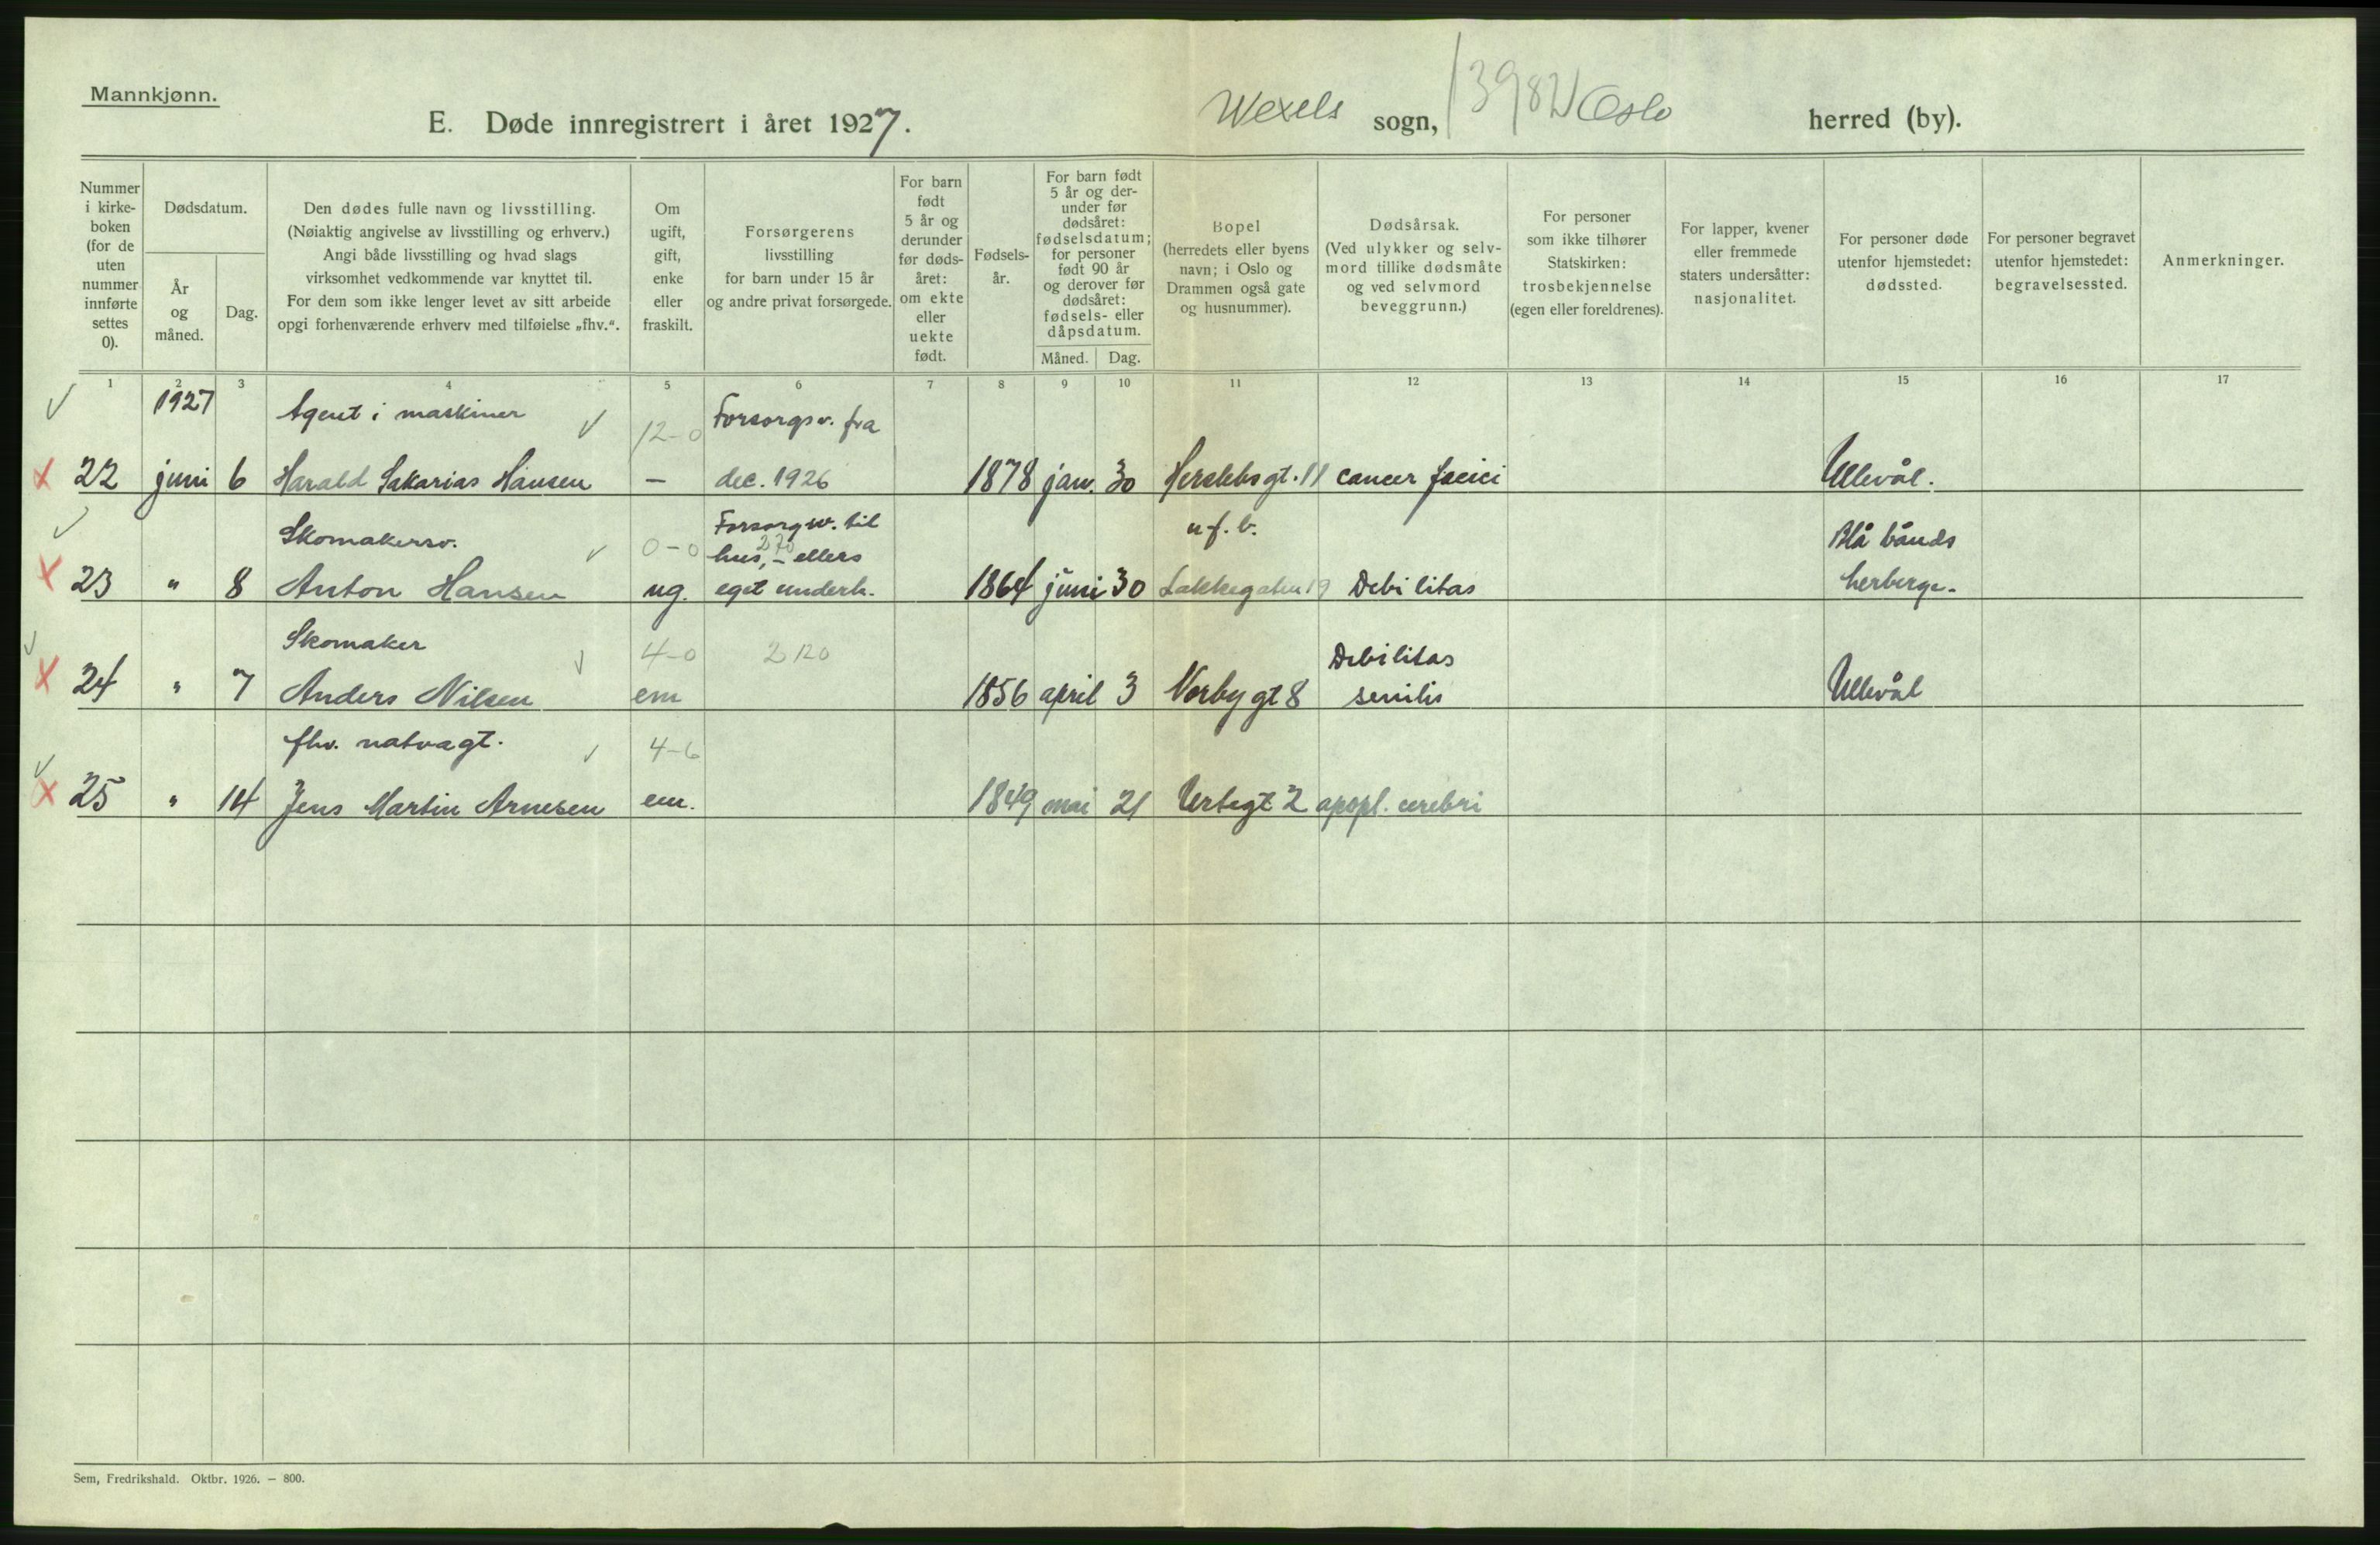 Mannkjønn.
E. Døde innregistrert i året 1927.
Wexels sogn, Oslo herred (by).
1398
Nummer
i kirke-
boken
(for de
uten
nummer
innførte
settes
0).
Dødsdatum.
År
og
måned.
Dag.
Den dødes fulle navn og livsstilling.
(Nøiaktig angivelse av livsstilling og erhverv.)
Angi både livsstilling og hvad slags
virksomhet vedkommende var knyttet til.
For dem som ikke lenger levet av sitt arbeide
opgi forhenværende erhverv med tilføielse „fhv.“.
Om
ugift,
gift,
enke
eller
fraskilt.
Forsørgerens
livsstilling
for barn under 15 år
og andre privat forsørgede.
For barn
født
5 år og
derunder
før døds-
året:
om ekte
eller
uekte
født.
Fødsels-
år.
For barn født
5 år og der-
under før
dødsåret:
fødselsdatum;
for personer
født 90 år
og derover før
dødsåret:
fødsels- eller
dåpsdatum.
Måned. Dag.
Bopel
(herredets eller byens
navn; i Oslo og
Drammen også gate
og husnummer).
Dødsårsak.
(Ved ulykker og selv-
mord tillike dødsmåte
og ved selvmord
beveggrunn.)
For personer
som ikke tilhører
Statskirken:
trosbekjennelse
(egen eller foreldrenes).
For lapper, kvener
eller fremmede
staters undersåtter:
nasjonalitet.
For personer døde
utenfor hjemstedet:
dødssted.
For personer begravet
utenfor hjemstedet:
begravelsessted.
Anmerkninger.
1 2 3 4 5 6 7 8 9 10 11 12 13 14 15 16 17
1927 Agent i maskiner 12-0 Forsorgsv. fra
22 juni 6 Harald Sakarias Hansen — dec. 1926 1878 jan. 30 Herslebsgt. 11 cancer faciei Ullevål.
Skomakersv. 0-0 Forsorgsv. til u.f.b. Blå bånds
270
hus, - ellers
23 " 8 Anton Hansen ug. eget underh. 1864 juni 30 Lakkegaten 19 Debilitas herberge.
Skomaker 4-0 2120 Debilitas
24 " 7 Anders Nilsen em 1856 april 3 Norbygt 8 senilis Ullevål
fhv. natvagt. 4-6
25 " 14 Jens Martin Arnesen em. 1849 mai 21 Urtegt 2 apopl. cerebri
Sem, Fredrikshald. Oktbr. 1926. — 800.